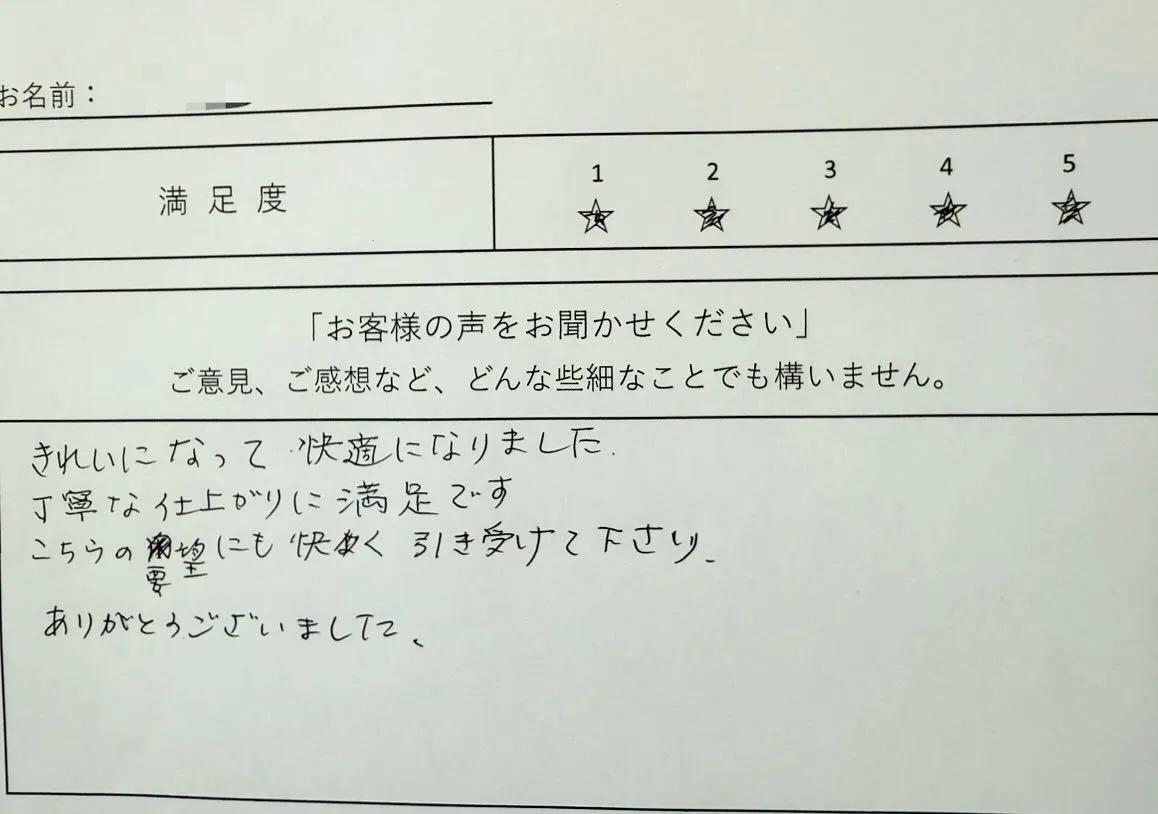 お名前：
満足度
1 2 3 4 5
「お客様の声をお聞かせください」
ご意見、ご感想など、どんな些細なことでも構いません。
きれいになって快適になりました.
丁寧な仕上がりに満足です
こちらの要望にも快く引き受けて下さり、
ありがとうございました、